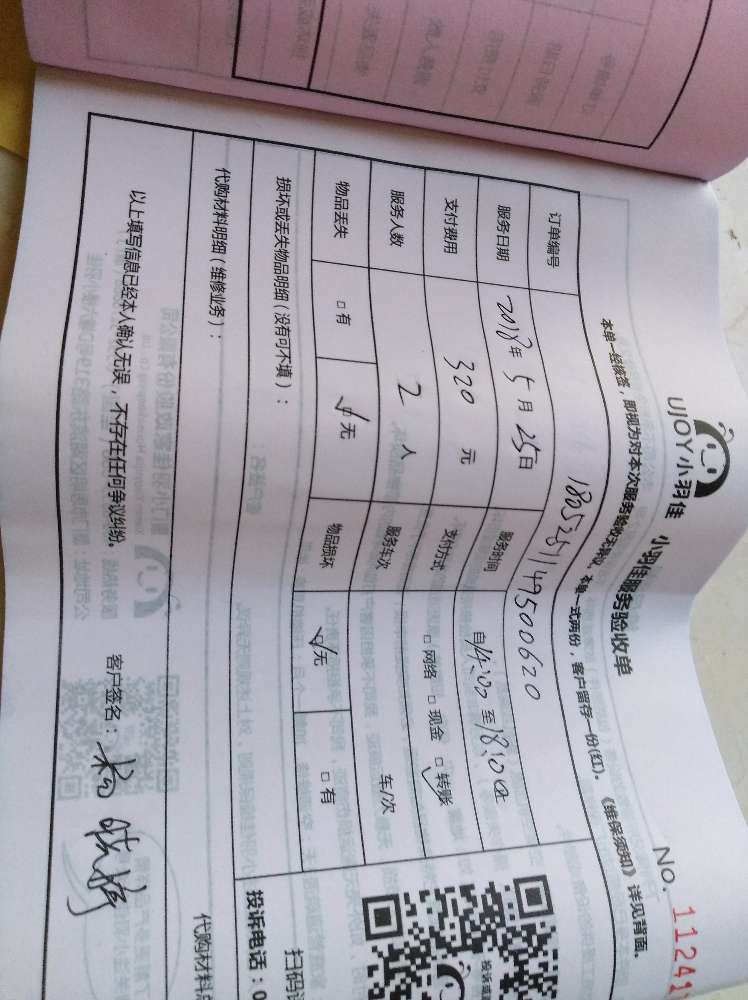 UJOY小羽佳 小羽佳服务验收单
NO. 11241
本单一经核签，即视为对本次服务验收无异议。本单一式两份，客户留存一份(红)。《维保须知》详见背面。
订单编号 180525114950062０
服务日期 2018年5月25日 服务时间 自14:00至18:00止
支付费用 320元 支付方式 □网络 □现金 □转账
服务人数 2人 服务车次 车/次
物品丢失 □有 □无 物品损坏 □无 □有
损坏或丢失物品明细（没有可不填）：
代购材料明细（维修业务）：
代购材料
以上填写信息已经本人确认无误，不存在任何争议纠纷。 客户签名：
扫码
投诉电话：0